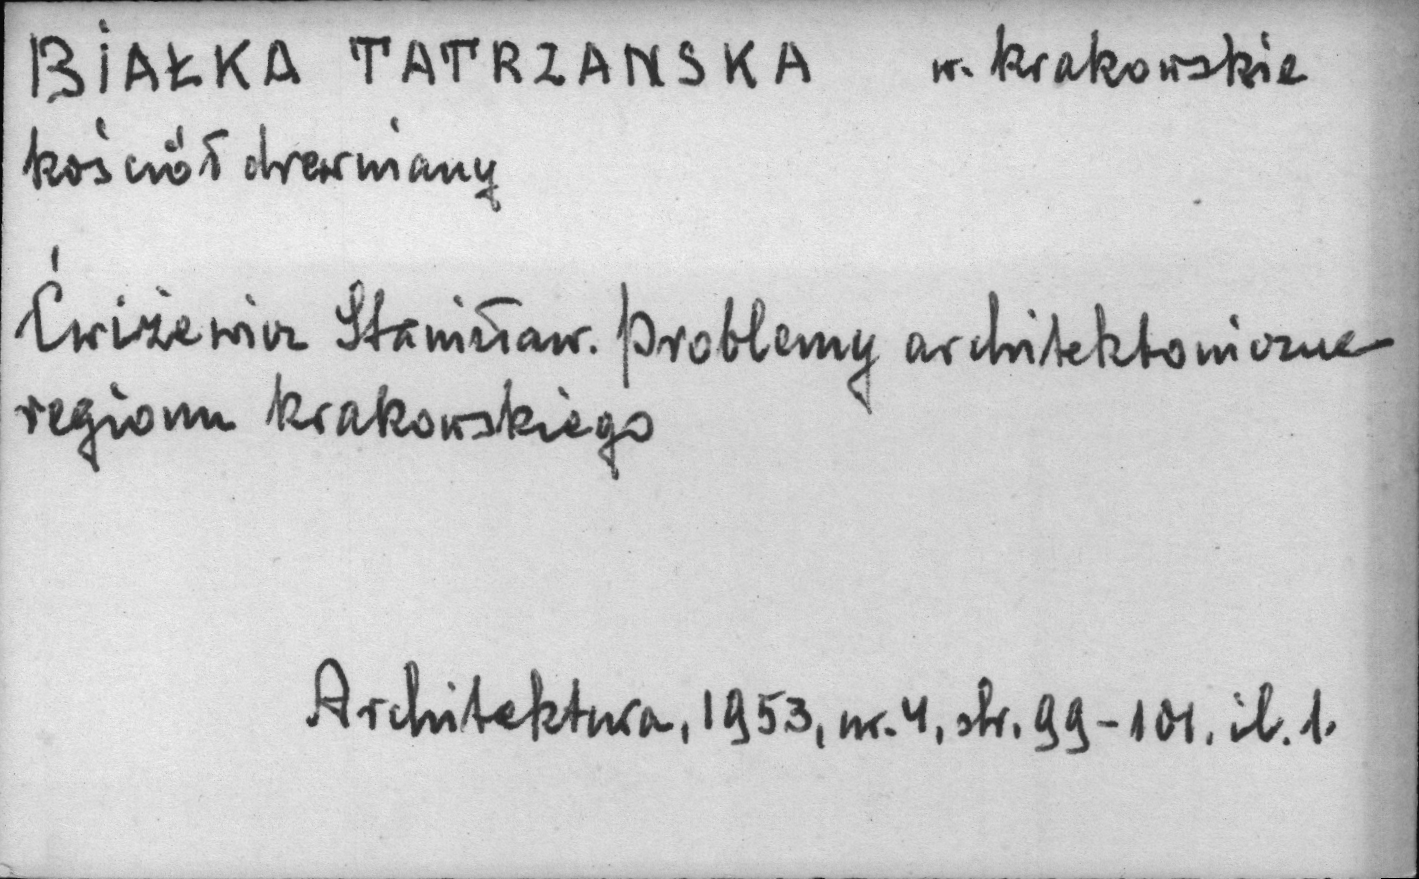 BIAŁKA TATRZANSKA w. krakowskie
kościół drewniany
Ćwiżewicz Stanisław. Problemy architektoniczne
regionu krakowskiego
Architektura, 1953, nr. 4, str. 99-101. il. 1.